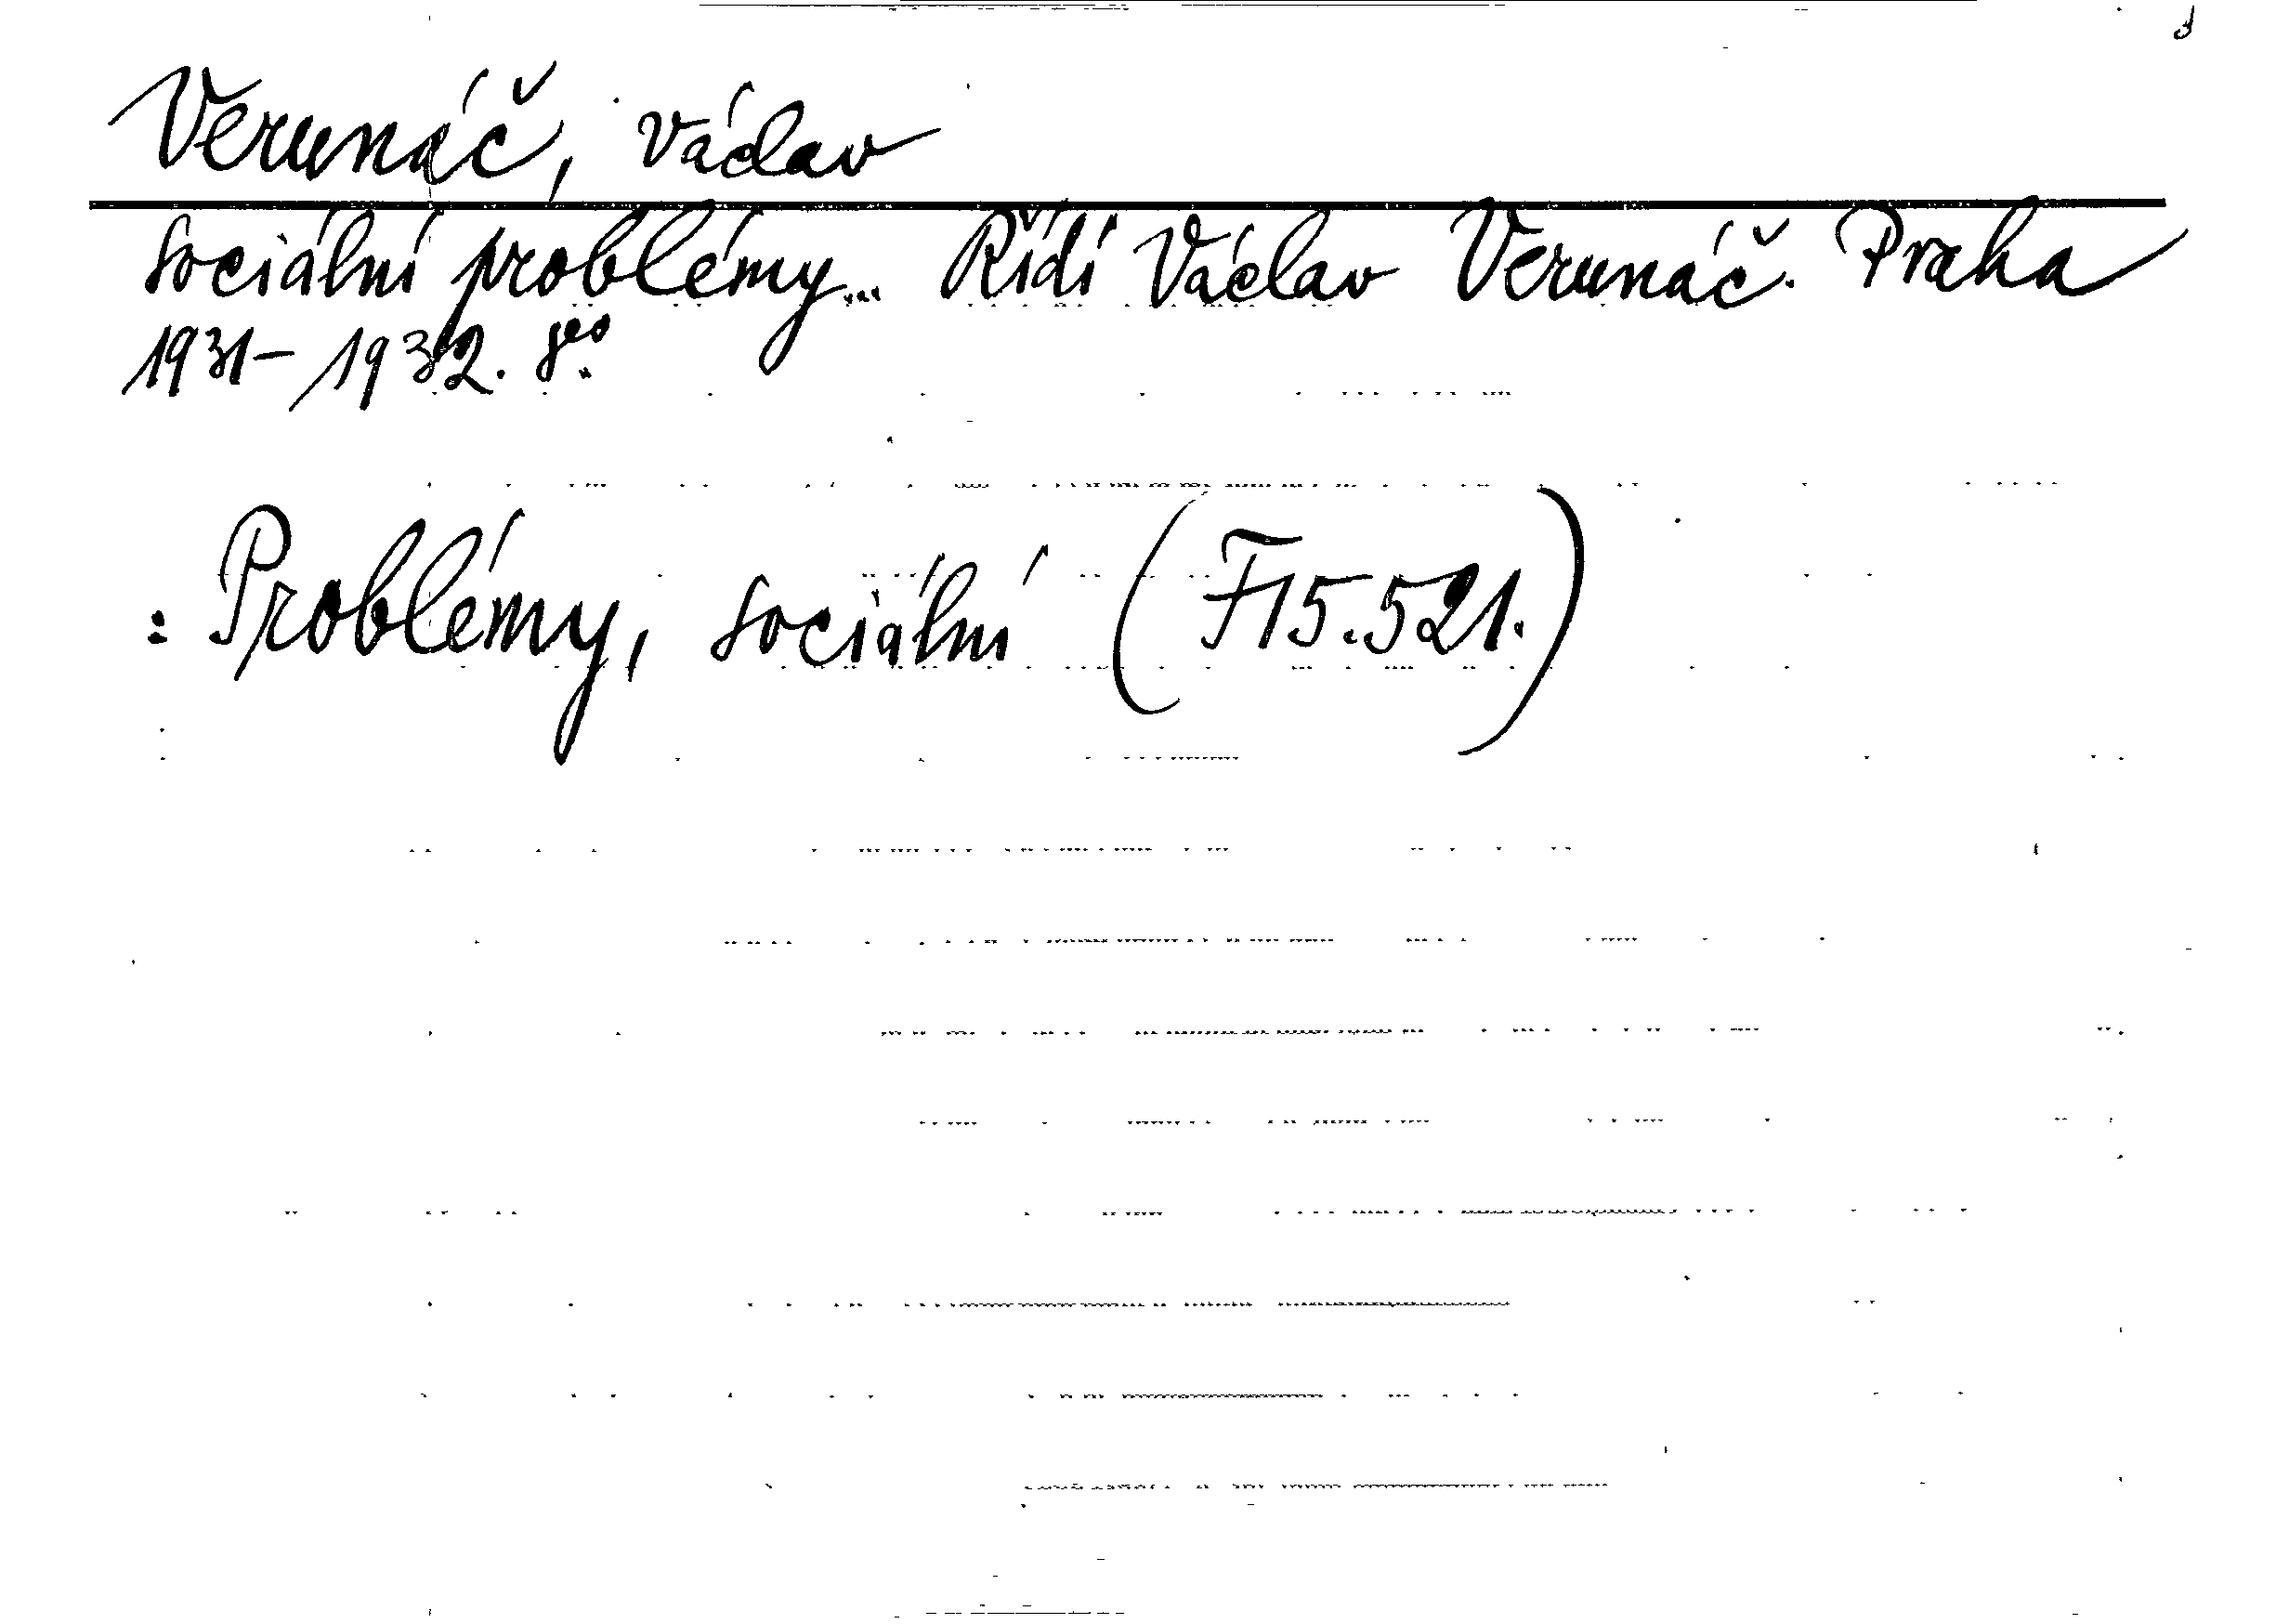 Verunáč, Václav
Sociální problémy... Řídí Václav Verunáč. Praha
1931-1932. 8°.
: Problémy, sociální (F 15.521.)